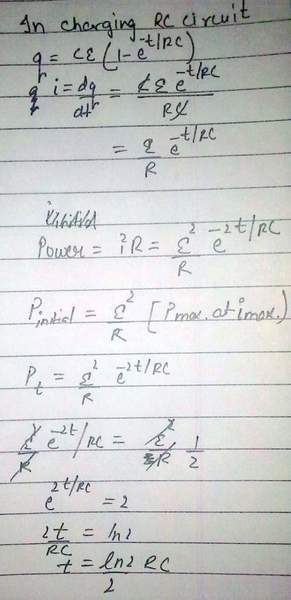 In charging RC circuit
q = Cε (1-e^-t/RC)
i = dq/dt = Cε e^-t/RC / RC
= ε/R e^-t/RC
Power = i²R = ε²/R e^-2t/RC
P initial = ε²/R [Pmax. at imax.]
Pt = ε²/R e^-2t/RC
ε²/R e^-2t/RC = ε²/R 1/2
e^2t/RC = 2
2t/RC = ln2
t = ln2 RC / 2